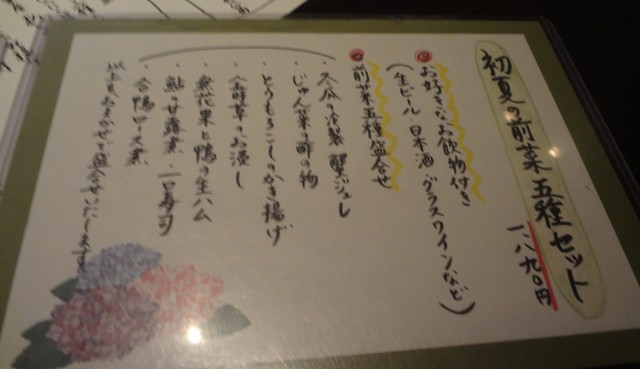 初夏の前菜五種セット
一、八九〇円
お好きなお飲物付き
(生ビール・日本酒・グラスワインなど)
前菜五種盛合せ
・冬瓜の冷製 蟹ジュレ
・じゅん菜の酢の物
・とうもろこしのかき揚げ
・金時草のお浸し
・無花果と鴨の生ハム
・鮎の甘露煮・一口寿司
・合鴨ロース煮
以上をおまかせで盛合せいたします